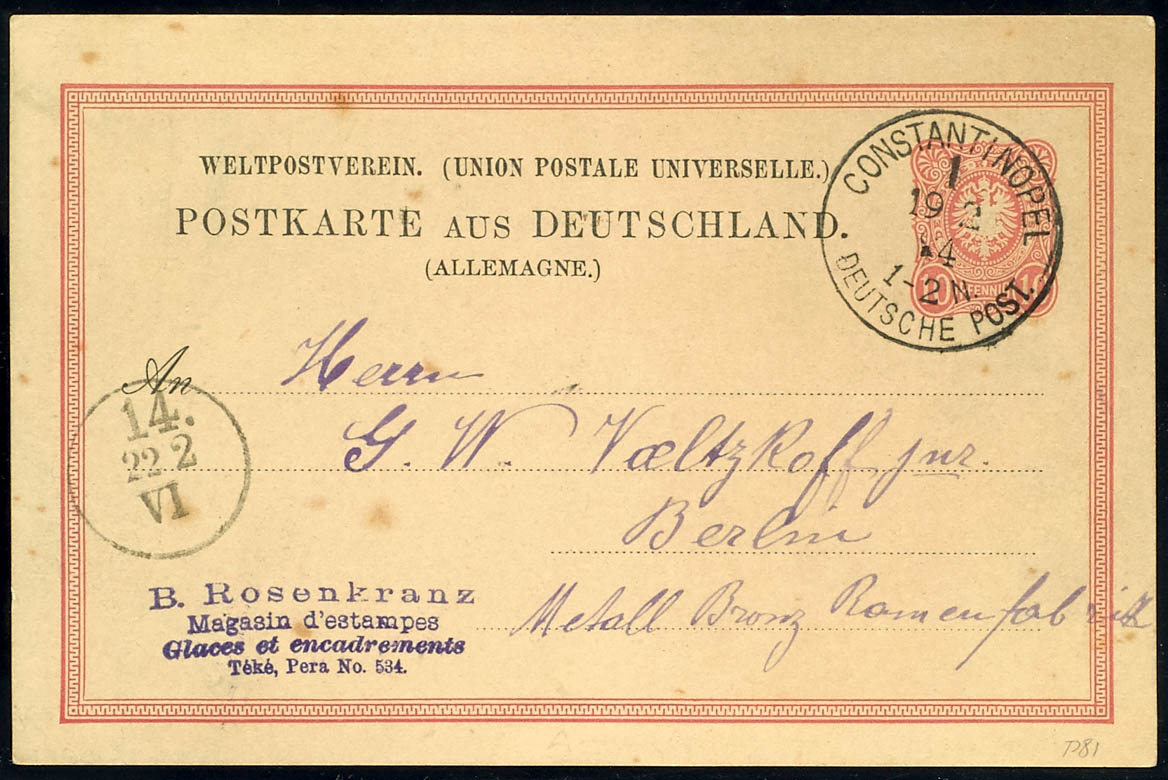 WELTPOSTVEREIN. (UNION POSTALE UNIVERSELLE.)
POSTKARTE AUS DEUTSCHLAND.
(ALLEMAGNE.)
CONSTANTINOPEL
1
19 2
84
1-2 N.
DEUTSCHE POST.
10 PFENNIG 10
An
Herrn
G. W. Væltzkoff jnr.
Berlin
Metall Bronz Ramenfabrik
14.
22 2
VI
B. Rosenkranz
Magasin d'estampes
Glaces et encadrements
Téké, Pera No. 534.
P81